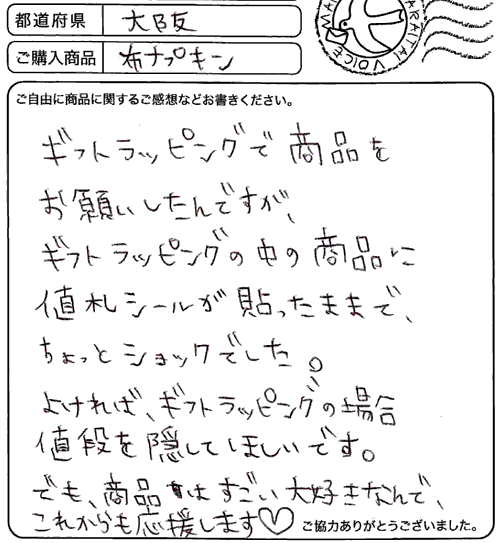 都道府県 大阪
ご購入商品 布ナプキン
ARAITAI VOICE
ご自由に商品に関するご感想などお書きください。
ギフトラッピングで商品を
お願いしたんですが、
ギフトラッピングの中の商品に
値札シールが貼ったままで、
ちょっとショックでした。
よければ、ギフトラッピングの場合
値段を隠してほしいです。
でも、商品はすごい大好きなんで、
これからも応援します♡
ご協力ありがとうございました。